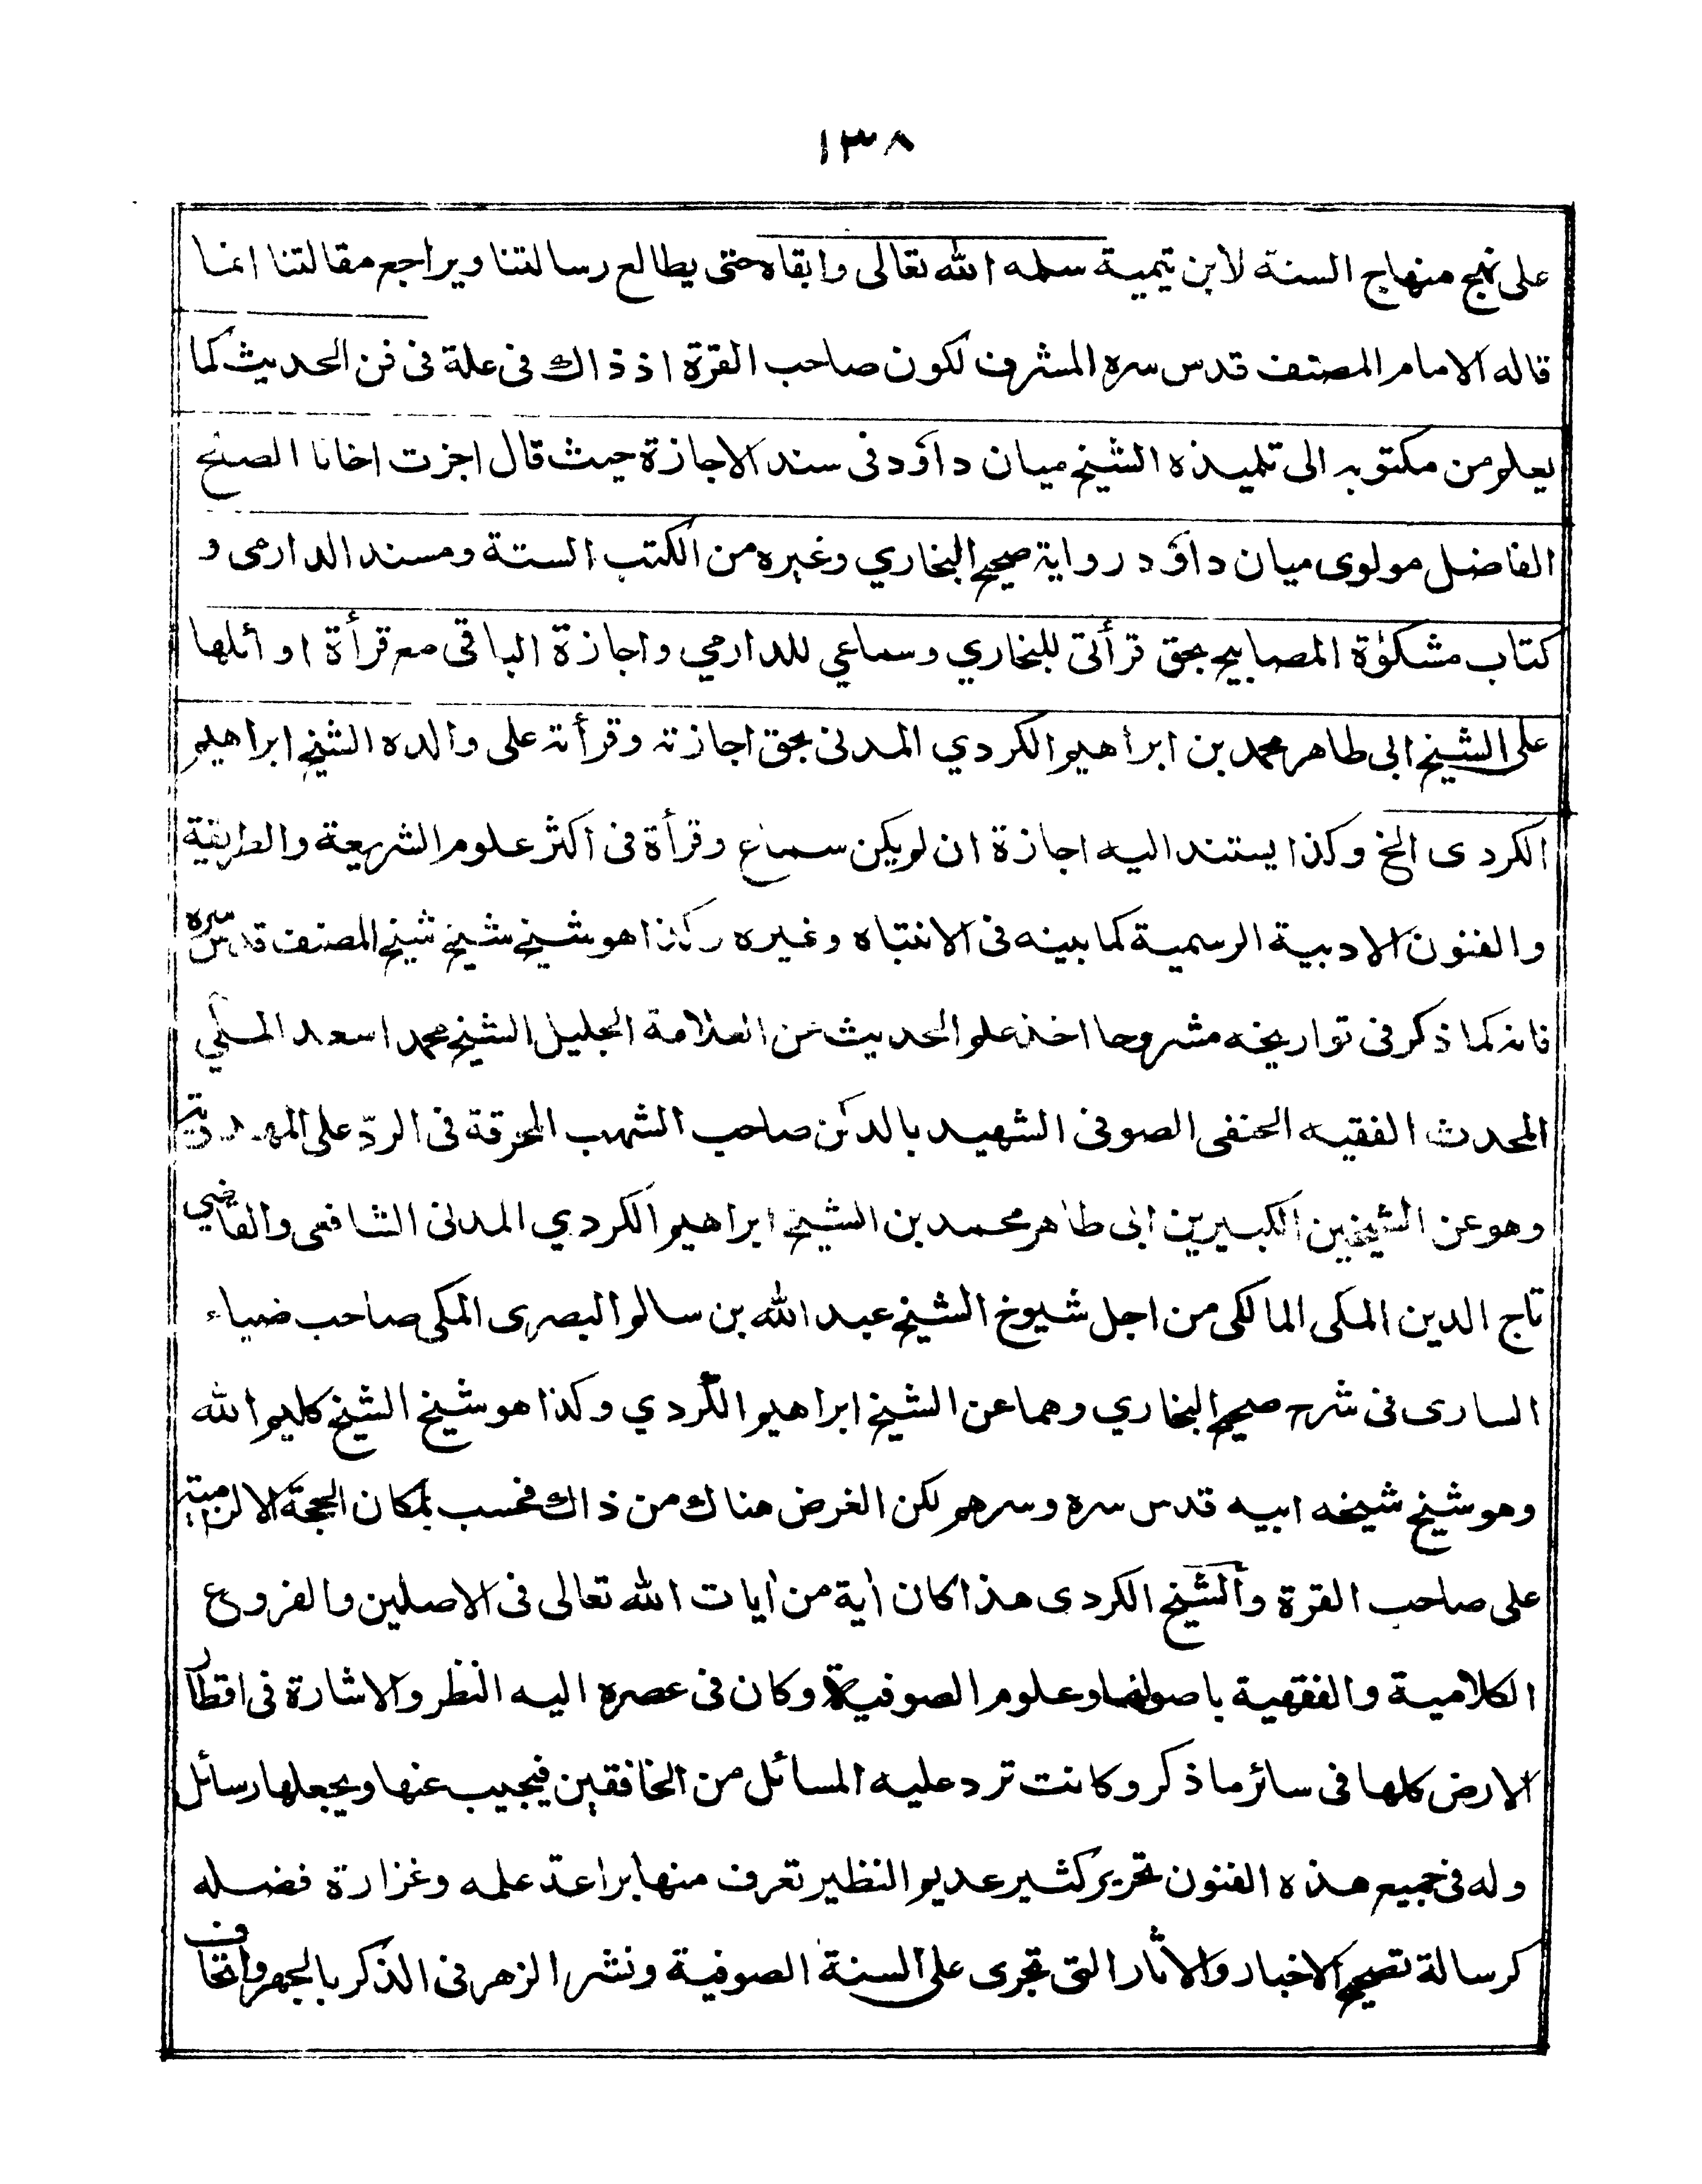 ١٣٨
على نهج منهاج السنة لابن تيمية سلمه الله تعالى وابقاه حتى يطالع رسالتنا ويراجع مقالتنا انما
قاله الامام المصنف قدس سره المشرف لكون صاحب القرة اذ ذاك فى علة فى فن الحديث كما
يعلم من مكتوبه الى تلميذه الشيخ ميان داؤد فى سند الاجازة حيث قال اجزت اخانا الصالح
الفاضل مولوى ميان داؤد رواية صحيح البخاري وغيره من الكتب الستة ومسند الدارمى و
كتاب مشكوٰة المصابيح بحق قرأتى للبخاري وسماعي للدارمي واجازة الباقى مع قرأة اوائلها
على الشيخ ابى طاهر محمد بن ابراهيم الكردي المدنى بحق اجازته وقرأته على والده الشيخ ابراهيم
الكردى الخ وكذا يستند اليه اجازة ان لم يكن سماع وقرأة فى اكثر علوم الشريعة والطريقة
والفنون الادبية الرسمية كما بينه فى الانتباه وغيره وكذا هو شيخ شيخ شيخ المصنف قدس سره
فانه كما ذكر فى تواريخه مشروحا اخذ علم الحديث عن العلامة الجليل الشيخ محمد اسعد المكي
المحدث الفقيه الحنفى الصوفى الشهيد بالدكن صاحب الشهب المحرقة فى الردّ على المهدوية
وهو عن الشيخين الكبيرين ابى طاهر محمد بن الشيخ ابراهيم الكردي المدنى الشافعى والقاضي
تاج الدين المكى المالكى من اجل شيوخ الشيخ عبد الله بن سالم البصرى المكى صاحب ضياء
السارى فى شرح صحيح البخاري وهما عن الشيخ ابراهيم الكردي وكذا هو شيخ الشيخ كليم الله
وهو شيخ شيخه ابيه قدس سره وسرهم لكن الغرض هناك من ذاك فحسب بمكان الحجة الالزمية
على صاحب القرة والشيخ الكردى هذا كان أية من أيات الله تعالى فى الاصلين والفروع
الكلامية والفقهية باصولها وعلوم الصوفية وكان فى عصره اليه النظر والاشارة فى اقطار
الارض كلها فى سائر ما ذكر وكانت ترد عليه المسائل من الخافقين فيجيب عنها ويجعلها رسائل
وله فى جميع هذه الفنون تحرير كثير عديم النظير تعرف منها براعة علمه وغزارة فضله
كرسالة تصحيح الاخبار والاثار التى تجرى على السنة الصوفية ونشر الزهر فى الذكر بالجهر واتحاف